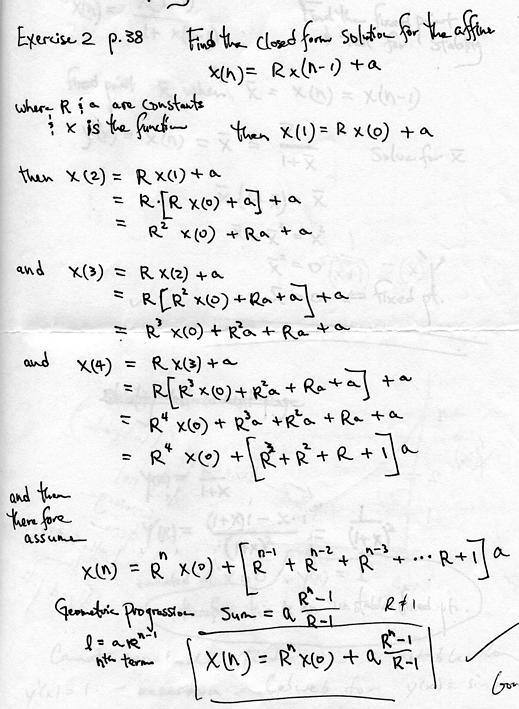 Exercise 2 p.38 Find the closed form solution for the affine
x(n) = R x(n-1) + a
where R & a are constants
& x is the function then x(1) = R x(0) + a
then x(2) = R x(1) + a
= R·[R x(0) + a] + a
= R² x(0) + Ra + a
and x(3) = R x(2) + a
= R[R² x(0) + Ra + a] + a
= R³ x(0) + R²a + Ra + a
and x(4) = R x(3) + a
= R[R³ x(0) + R²a + Ra + a] + a
= R⁴ x(0) + R³a + R²a + Ra + a
= R⁴ x(0) + [R³ + R² + R + 1] a
and then
therefore
assume
x(n) = Rⁿ x(0) + [Rⁿ⁻¹ + Rⁿ⁻² + Rⁿ⁻³ + ··· R + 1] a
Geometric Progression Sum = a (Rⁿ-1)/(R-1) R ≠ 1
l = a Rⁿ⁻¹
nth term
X(n) = Rⁿ x(0) + a (Rⁿ-1)/(R-1) ✓